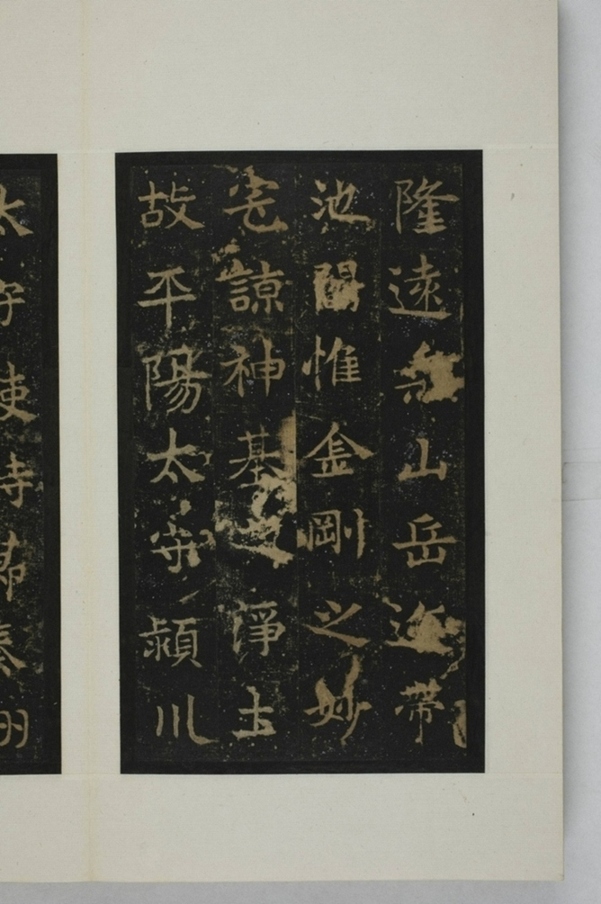 隆遠山岳近帶
池惟金剛之妙
宅諒神基之淨土
故平陽太守潁川
太守使持節秦